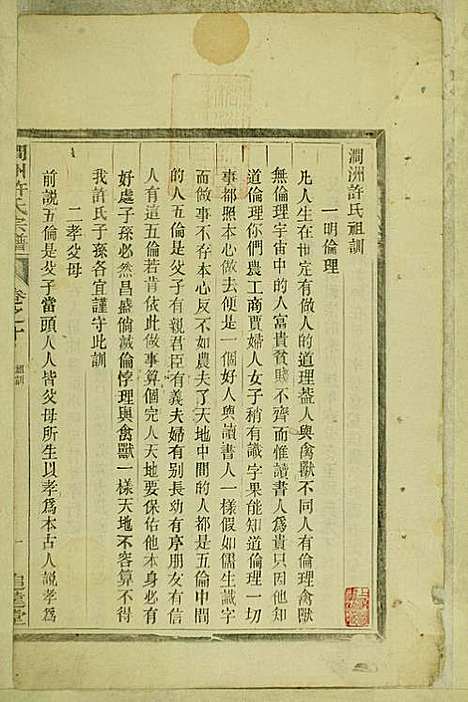 澗洲許氏祖訓
一明倫理
凡人生在世定有做人的道理蓋人與禽獸不同人有倫理禽獸
無倫理宇宙中的人富貴貧賤不齊而惟讀書人爲貴只因他知
道倫理你們農工商賈婦人女子稍有識字果能知道倫理一切
事都照本心做去便是一個好人與讀書人一樣假如儒生識字
而做事不存本心反不如農夫了天地中間的人都是五倫中間
的人五倫是父子有親君臣有義夫婦有别長幼有序朋友有信
人有這五倫若肯依此做事算個完人天地要保佑他本身必有
好處子孫必然昌盛倘滅倫悖理與禽獸一樣天地不容算不得
我許氏子孫各宜謹守此訓
二孝父母
前說五倫是父子當頭人人皆父母所生以孝爲本古人說孝爲
澗州許氏宗譜
卷之十
祖訓
一